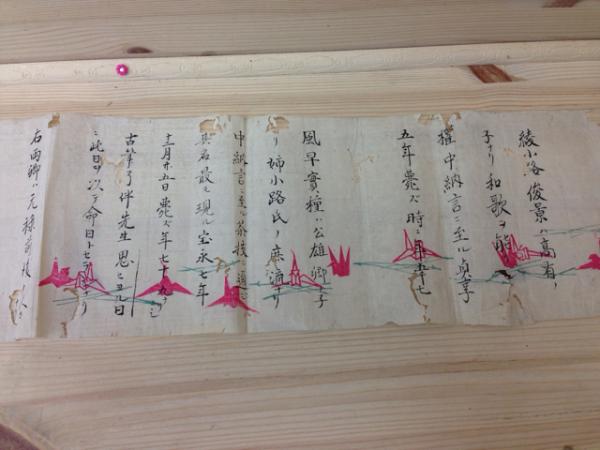 綾小路俊景ハ高有ノ
子ナリ和歌ヲ能
権中納言ニ至ル貞享
五年薨ズ時ニ年五十七
風早實種ハ公雄卿ノ子
リ姉小路氏ノ庶流ナリ
中納言ニ至ル茶技ニ通
其名最モ現ル宝永七年
十二月廿五日薨ズ年七十九
古筆了伴先生思ヒヨル日
此日ヲ以テ命日トセ
右両卿ハ元禄茶技